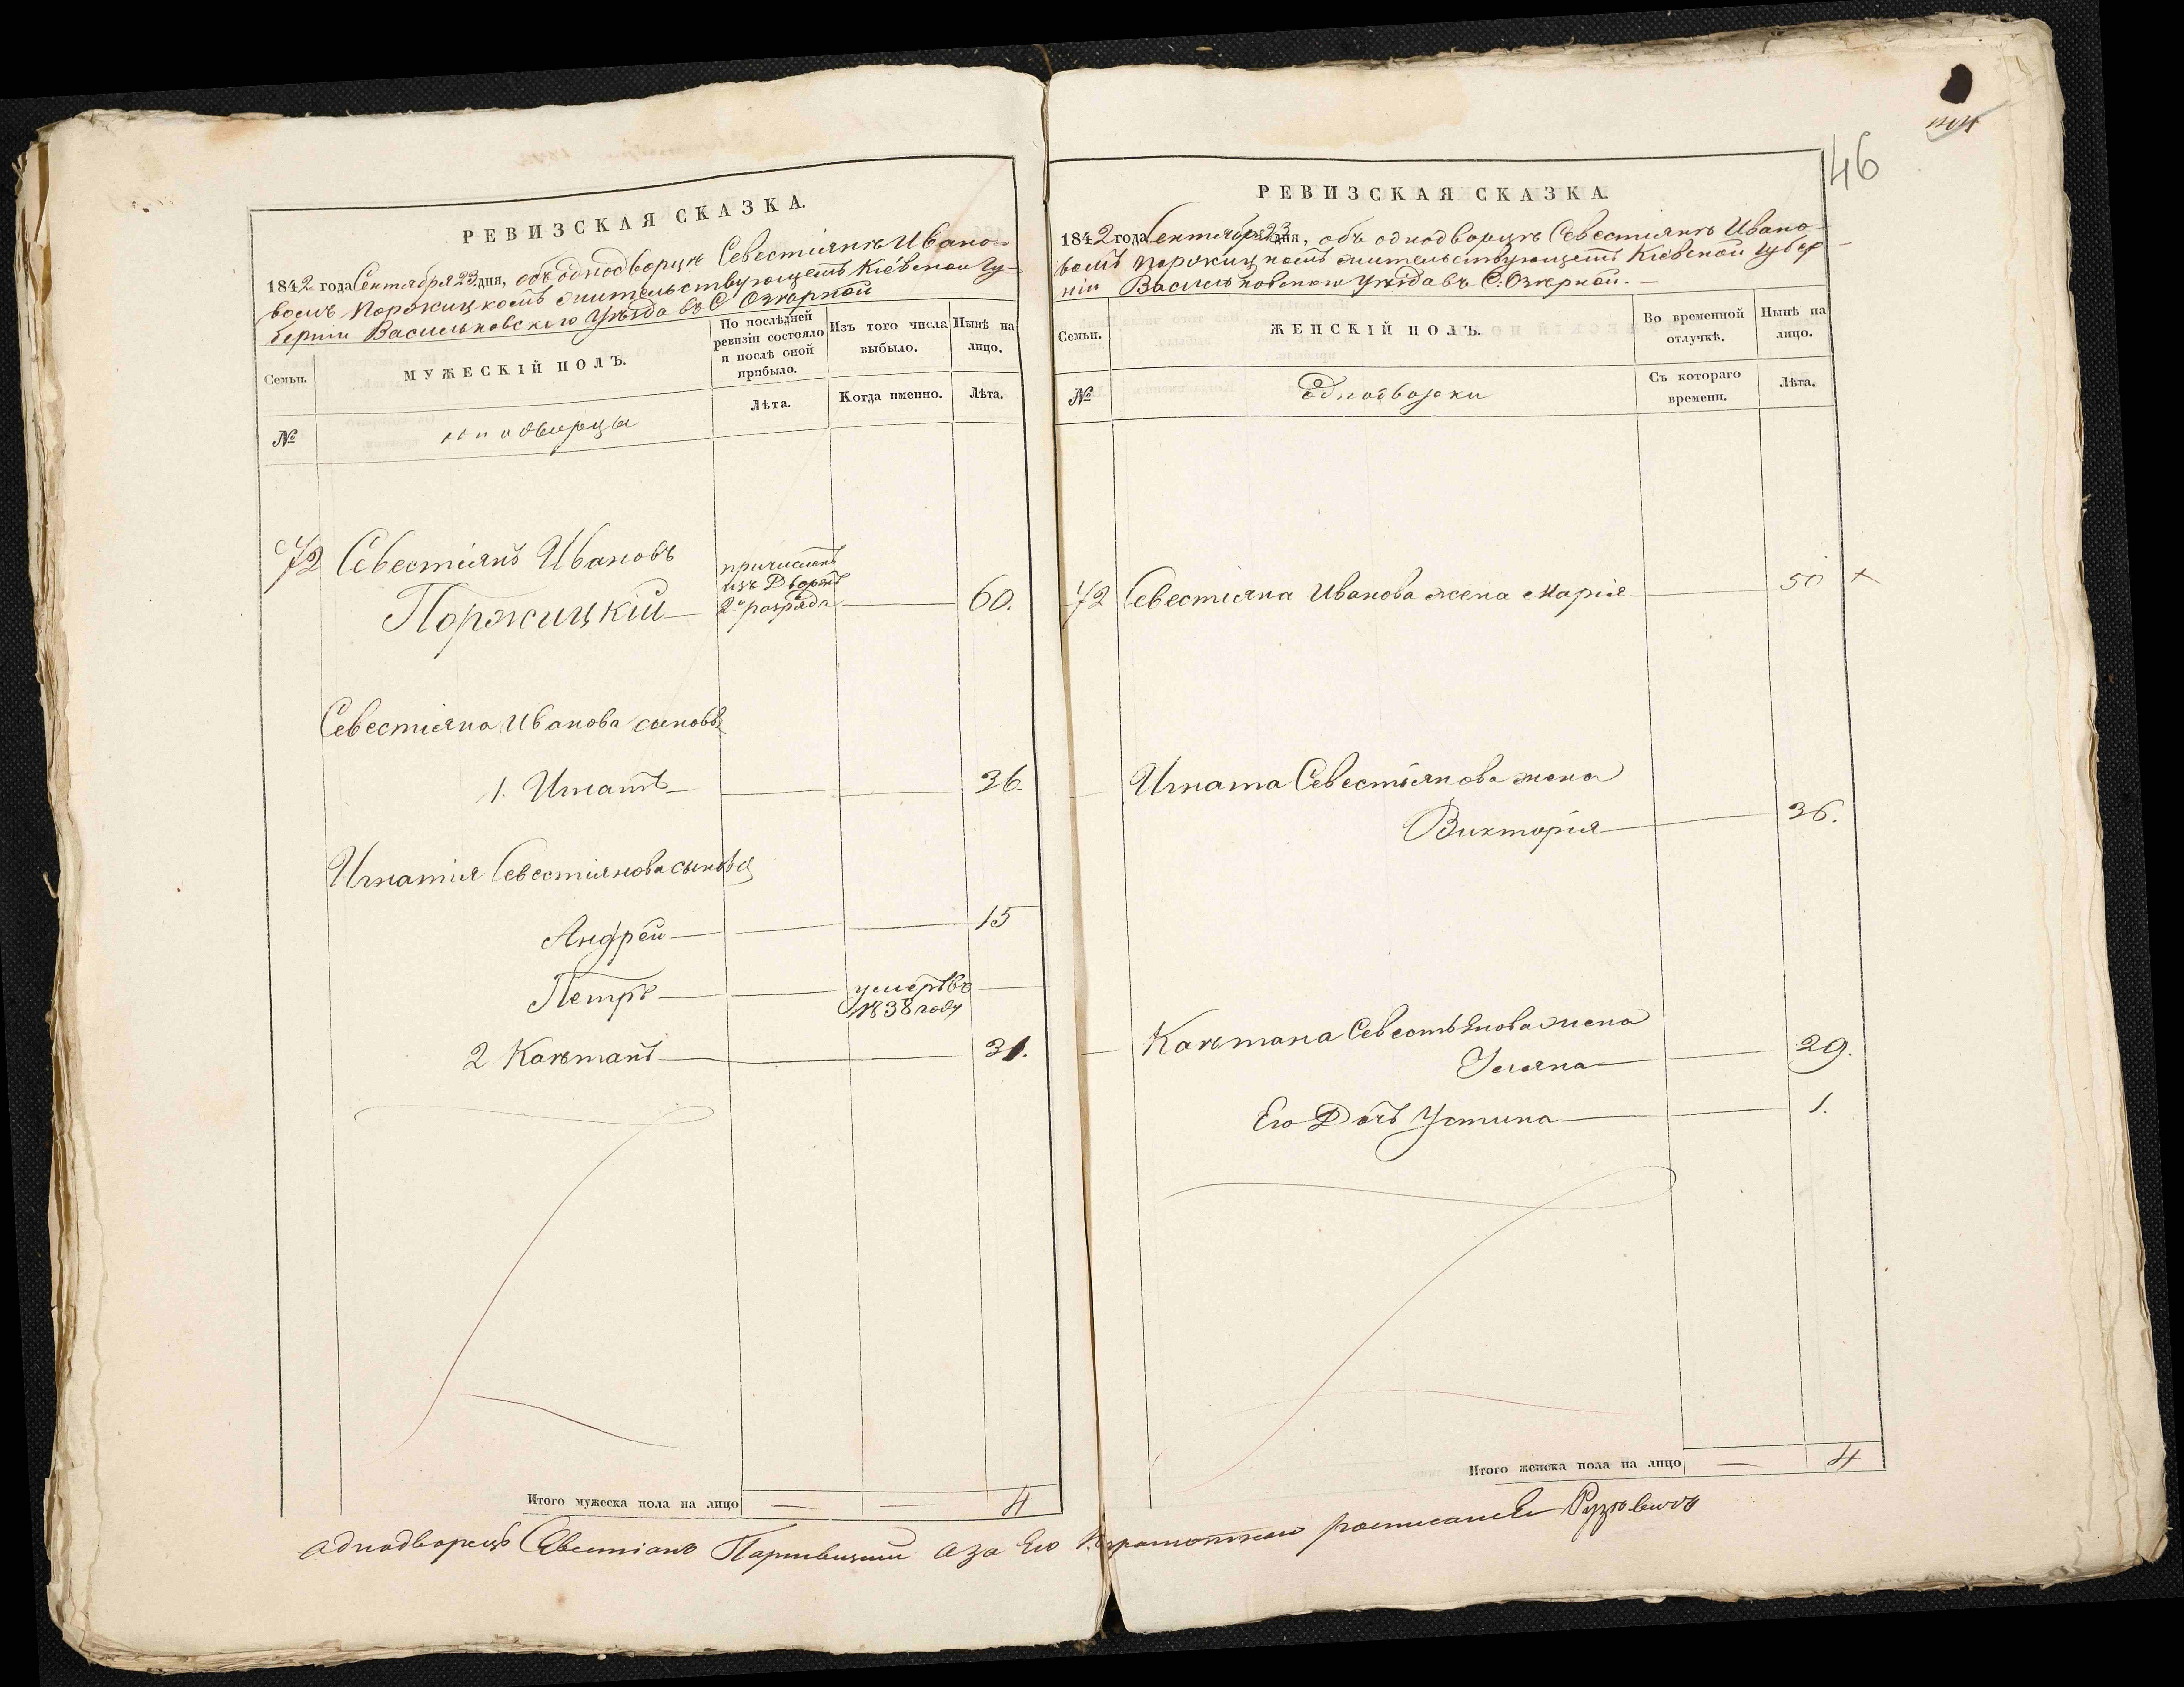 РЕВИЗСКАЯ СКАЗКА.
1842 года Сентября 23 дня, объ однодворцѣ Севестіянѣ Ивано-
вомъ Поржицкомъ жительствующемъ Кіевской Гу-
берніи Васильковскаго Уѣзда въ С Озѣрной
Семьи.
МУЖЕСКІЙ ПОЛЪ.
По послѣдней
ревизіи состояло
и послѣ оной
прибыло.
Изъ того числа
выбыло.
Нынѣ на
лицо.
№
однодворцы
Лѣта.
Когда именно.
Лѣта.
72 Севестіянъ Ивановъ
Поржицкій
причисленъ
изъ Дворянъ
2го разряда
60.
Севестіяна Иванова сыновья
1. Игнатъ 36.
Игнатія Севестіянова сыновья
Андрей 15
Петръ умеръ въ
1838 году
2 Каэтанъ 31.
Итого мужеска пола на лицо — — 4
46
РЕВИЗСКАЯ СКАЗКА.
1842 года Сентября 23 дня, объ однодворцѣ Севестіянѣ Ивано-
вомъ Поржицкомъ жительствующемъ Кіевской Губер-
ніи Васильковскаго Уѣзда въ С. Озѣрной.
Семьи.
ЖЕНСКІЙ ПОЛЪ.
Во временной
отлучкѣ.
Нынѣ на
лицо.
№
Однодворки
Съ котораго
времени.
Лѣта.
72 Севестіяна Иванова жена Марія 50 х
Игната Севестіянова жена
Викторія 36.
Каэтана Севестьянова жена
Уляна 29.
Его Дочь Устина 1.
Итого женска пола на лицо — 4
Аднодворецъ Севестіанъ а за Его неграмотнаго росписался